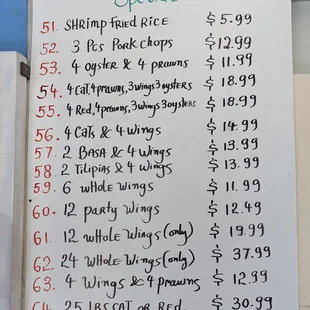 51. SHRIMP FRIED RICE $5.99
52. 3 PCS PORK CHOPS $12.99
53. 4 oyster & 4 prawns $11.99
54. 4 Cat, 4 prawns, 3 wings 3 oysters $18.99
55. 4 Red, 4 prawns, 3 wings 3 oysters $18.99
56. 4 Cats & 4 wings $14.99
57. 2 BASA & 4 Wings $13.99
58. 2 Tilipias & 4 wings $13.99
59. 6 whole wings $11.99
60. 12 party wings $12.49
61. 12 whole wings (only) $19.99
62. 24 whole wings (only) $37.99
63. 4 Wings & 4 prawns $12.99
64. 25 LBS CAT OR RED. $30.99